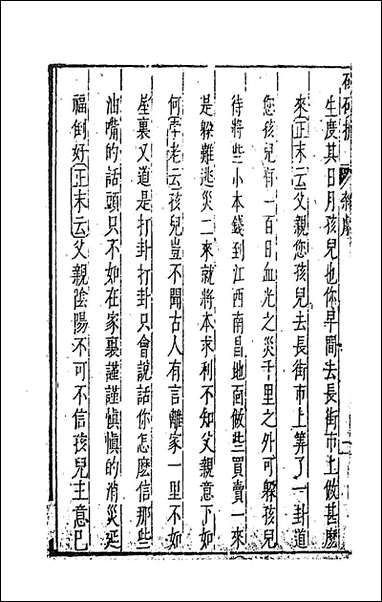 生度其日月孩兒也你早間去長街市上做甚麽
來正末云父親您孩兒去長街市上筭了一卦道
您孩兒有一百日血光之災千里之外可躱孩兒
待將些小本錢到江西南昌地面做些買賣一來
是躱難逃災二來就將本求利不知父親意下如
何孛老云孩兒豈不聞古人有言離家一里不如
屋裏又道是打卦打卦只會說話你怎麽信那些
油嘴的話頭只不如在家裏謹謹慎慎的消災延
福倒好正末云父親陰陽不可不信孩兒主意已